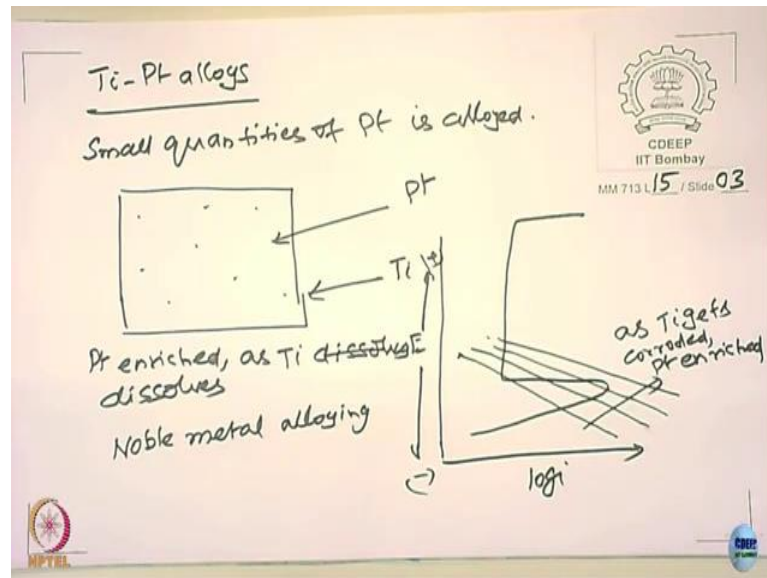 Ti-Pt alloys
Small quantities of Pt is alloyed.
CDEEP
IIT Bombay
MM 713 L 15 / Slide 03
Pt
Ti
E
(+)
(-)
log i
as Ti gets
corroded,
Pt enriched
Pt enriched, as Ti dissolve
dissolves
Noble metal alloying
NPTEL
CDEEP